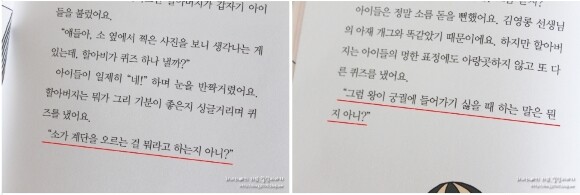 들을 불렀어요.
"얘들아, 소 옆에서 찍은 사진을 보니 생각나는 게
있는데, 할아비가 퀴즈 하나 낼까?"
아이들이 일제히 "네!" 하며 눈을 반짝거렸어요.
할아버지는 뭐가 그리 기분이 좋은지 싱글거리며 퀴
즈를 냈어요.
"소가 계단을 오르는 걸 뭐라고 하는지 아니?"
아이들은 정말 소름 돋을 뻔했어요. 김영롱 선생님
의 아재 개그와 똑같았기 때문이에요. 하지만 할아버
지는 아이들의 멍한 표정에도 아랑곳하지 않고 또 다
른 퀴즈를 냈어요.
"그럼 왕이 궁궐에 들어가기 싫을 때 하는 말은 뭔
지 아니?"